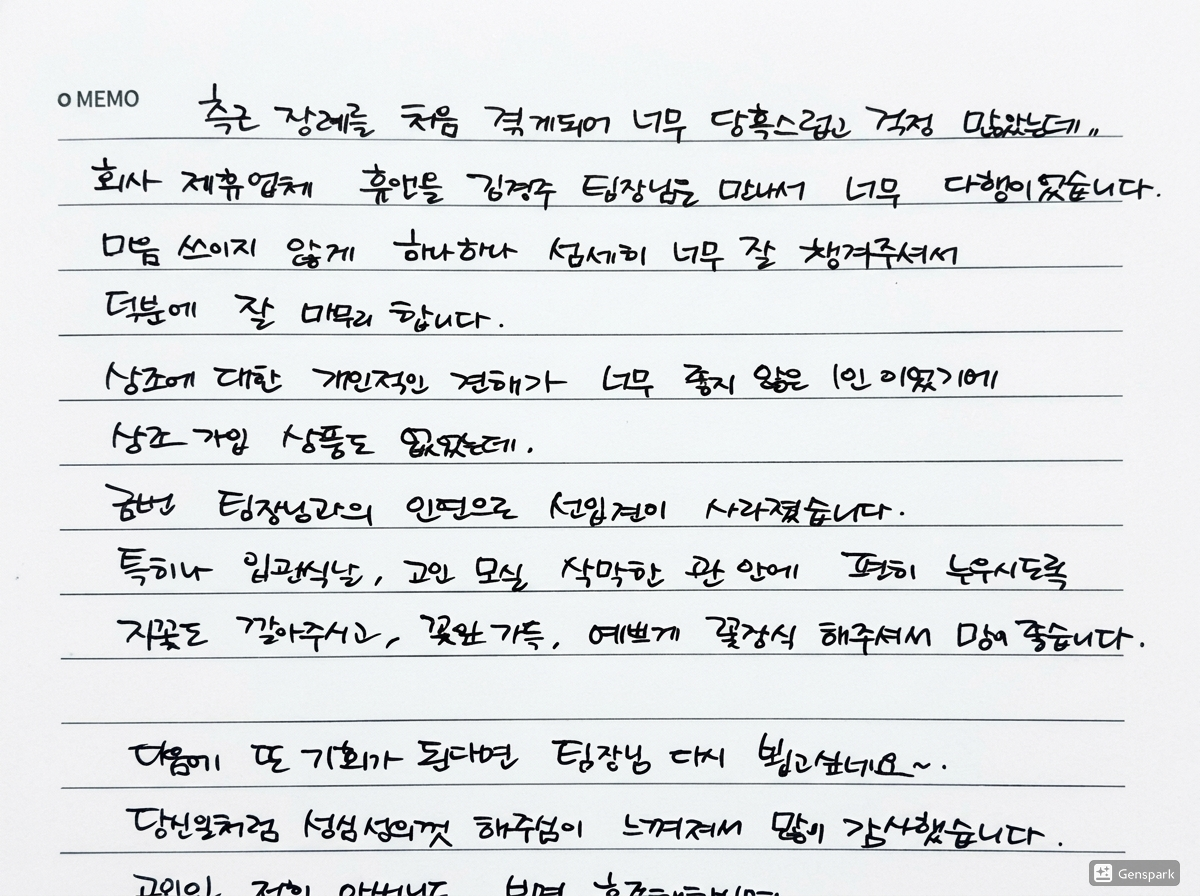 MEMO
측근 장례를 처음 겪게되어 너무 당혹스럽고 걱정 많았는데..
회사 제휴업체 휴앤을 김경주 팀장님을 만나서 너무 다행이었습니다.
마음 쓰이지 않게 하나하나 섬세히 너무 잘 챙겨주셔서
덕분에 잘 마무리 합니다.
상조에 대한 개인적인 견해가 너무 좋지 않은 1인 이였기에
상조 가입 상품도 없었는데.
금번 팀장님과의 인연으로 선입견이 사라졌습니다.
특히나 입관식날, 고인 모실 삭막한 관 안에 편히 누우시도록
지꽃도 깔아주시고, 꽃관 가득, 예쁘게 꽃장식 해주셔서 맘이 좋습니다.
다음에 또 기회가 된다면 팀장님 다시 뵙고싶네요~.
당신일처럼 성심성의껏 해주심이 느껴져서 많이 감사했습니다.
저희 아버님도 보면
Genspark